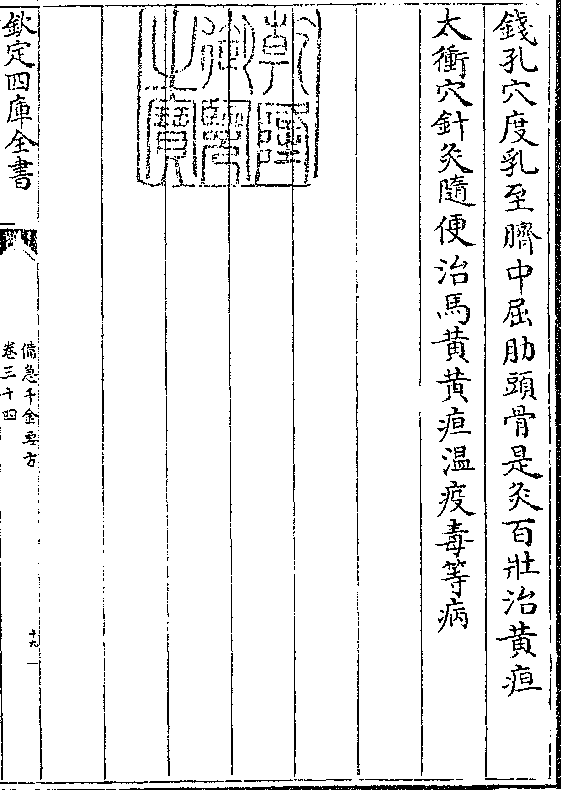 錢孔穴度乳至臍中屈肋頭骨是灸百壯治黄疸
太衝穴針灸隨便治馬黄黄疸温疫毒等病
乾隆御覽之寶
欽定四庫全書
備急千金要方
卷三十四
十九